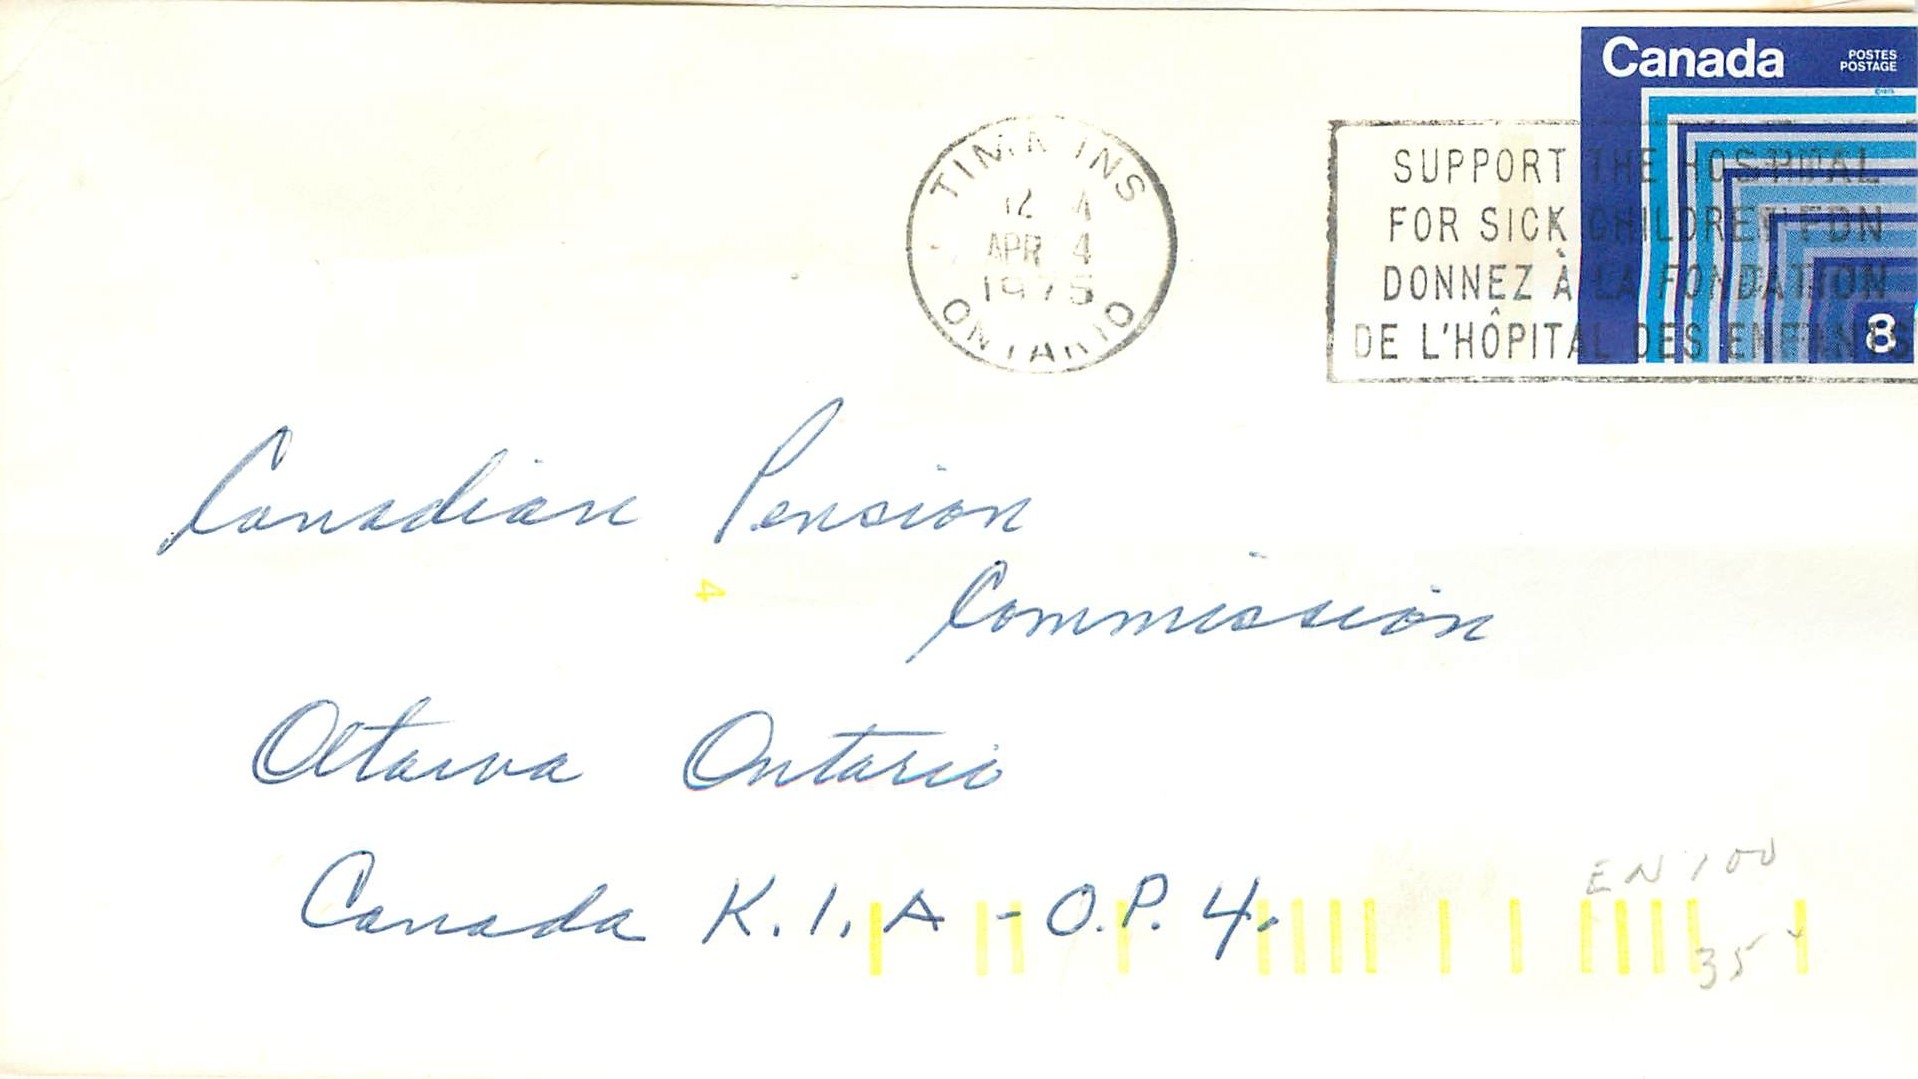 Canada POSTES
POSTAGE
TIMMINS
12 A
APR 4
1975
ONTARIO
SUPPORT THE HOSPITAL
FOR SICK CHILDREN FDN
DONNEZ À LA FONDATION
DE L'HÔPITAL DES ENFANTS
8
Canadian Pension
4
Commission
Ottawa Ontario
Canada K.1.A - O.P.4.
EN 100
35